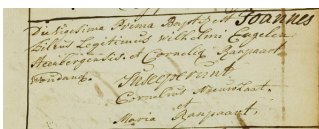 Die vigesima Prima Baptisatus est Joannes
filius Legitimus Wilhelmi Engelen
et Corneliæ Ransaart
Susceperunt
Cornelius Nieuwlaat
et
Maria Ransaart.